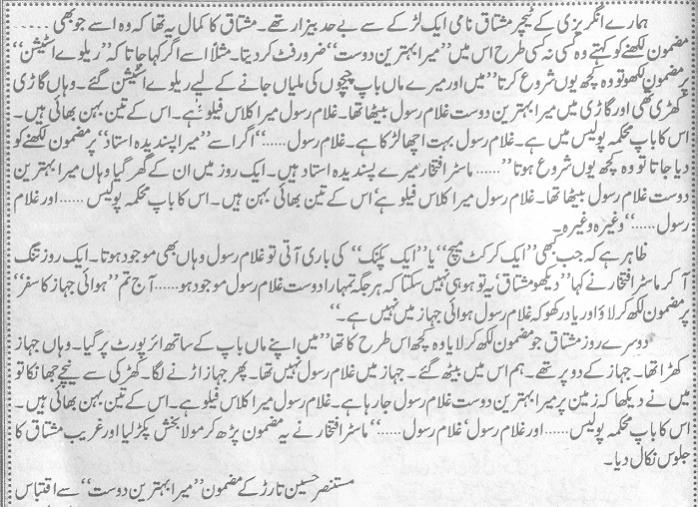 ہمارے انگریزی کے ٹیچر مشتاق نامی ایک لڑکے سے بے حد بیزار تھے۔ مشتاق کا کمال یہ تھا کہ وہ اسے جو بھی ......
مضمون لکھنے کو کہتے وہ کسی نہ کسی طرح اس میں ”میرا بہترین دوست“ ضرور فٹ کر دیتا۔ مثلاً اسے اگر کہا جاتا کہ ”ریلوے اسٹیشن“
پر مضمون لکھو تو وہ کچھ یوں شروع کرتا ”میں اور میرے ماں باپ چیچوں کی ملیاں جانے کے لیے ریلوے اسٹیشن گئے۔ وہاں گاڑی
کھڑی تھی اور گاڑی میں میرا بہترین دوست غلام رسول بیٹھا تھا۔ غلام رسول میرا کلاس فیلو ہے۔ اس کے تین بہن بھائی ہیں۔
اس کا باپ محکمہ پولیس میں ہے۔ غلام رسول بہت اچھا لڑکا ہے۔ غلام رسول......“ اگر اسے ”میرا پسندیدہ استاد“ پر مضمون لکھنے کو
دیا جاتا تو وہ کچھ یوں شروع ہوتا ”...... ماسٹر افتخار میرے پسندیدہ استاد ہیں۔ ایک روز میں ان کے گھر گیا وہاں میرا بہترین
دوست غلام رسول بیٹھا تھا۔ غلام رسول میرا کلاس فیلو ہے‘ اس کے تین بھائی بہن ہیں۔ اس کا باپ محکمہ پولیس ...... اور غلام
رسول......“ وغیرہ وغیرہ۔
ظاہر ہے کہ جب بھی ”ایک کرکٹ میچ“ یا ”ایک پکنک“ کی باری آتی تو غلام رسول وہاں بھی موجود ہوتا۔ ایک روز تنگ
آ کر ماسٹر افتخار نے کہا ”دیکھو مشتاق‘ یہ تو ہو ہی نہیں سکتا کہ ہر جگہ تمہارا دوست غلام رسول موجود ہو...... آج تم ”ہوائی جہاز کا سفر“
پر مضمون لکھ کر لاؤ اور یاد رکھو کہ غلام رسول ہوائی جہاز میں نہیں ہے۔“
دوسرے روز مشتاق جو مضمون لکھ کر لایا وہ کچھ اس طرح کا تھا ”میں اپنے ماں باپ کے ساتھ ائرپورٹ پر گیا۔ وہاں جہاز
کھڑا تھا۔ جہاز کے دو پر تھے۔ ہم اس میں بیٹھ گئے۔ جہاز میں غلام رسول نہیں تھا۔ پھر جہاز اڑنے لگا۔ کھڑکی سے نیچے جھانکا تو
میں نے دیکھا کہ زمین پر میرا بہترین دوست غلام رسول جا رہا ہے۔ غلام رسول میرا کلاس فیلو ہے۔ اس کے تین بہن بھائی ہیں۔
اس کا باپ محکمہ پولیس...... اور غلام رسول‘ غلام رسول......“ ماسٹر افتخار نے یہ مضمون پڑھ کر مولا بخش پکڑ لیا اور غریب مشتاق کا
جلوس نکال دیا۔
مستنصر حسین تارڑ کے مضمون ”میرا بہترین دوست“ سے اقتباس